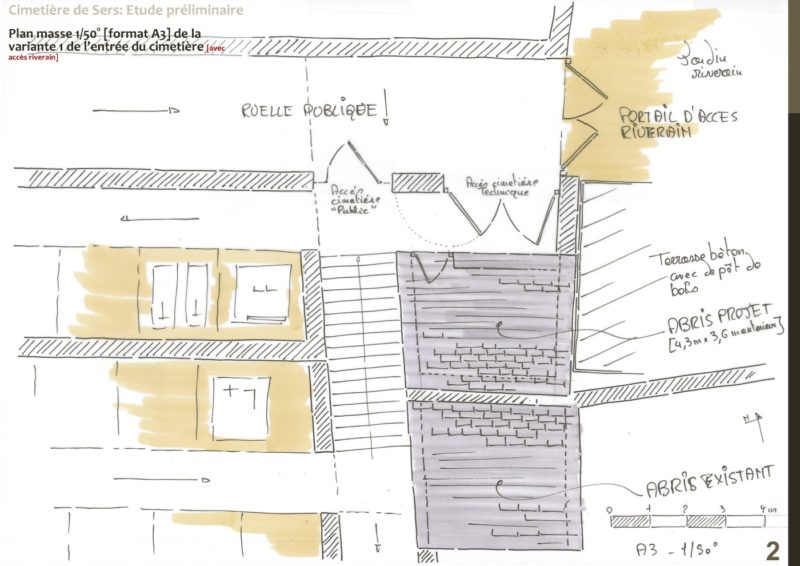 Cimetière de Sers: Etude préliminaire
Plan masse 1/50° [format A3] de la
variante 1 de l'entrée du cimetière [avec
accès riverain]
Jardin
riverain
RUELLE PUBLIQUE
PORTAIL D'ACCES
RIVERAIN
Accés
cimetière
"Public"
Accés cimetière
technique
Terrasse bèton
avec depôt de
bois
ABRIS PROJET
[4,3m x 3,6 m exterieur]
ABRIS EXISTANT
0 1 2 3 4m
A3 - 1/50°
2